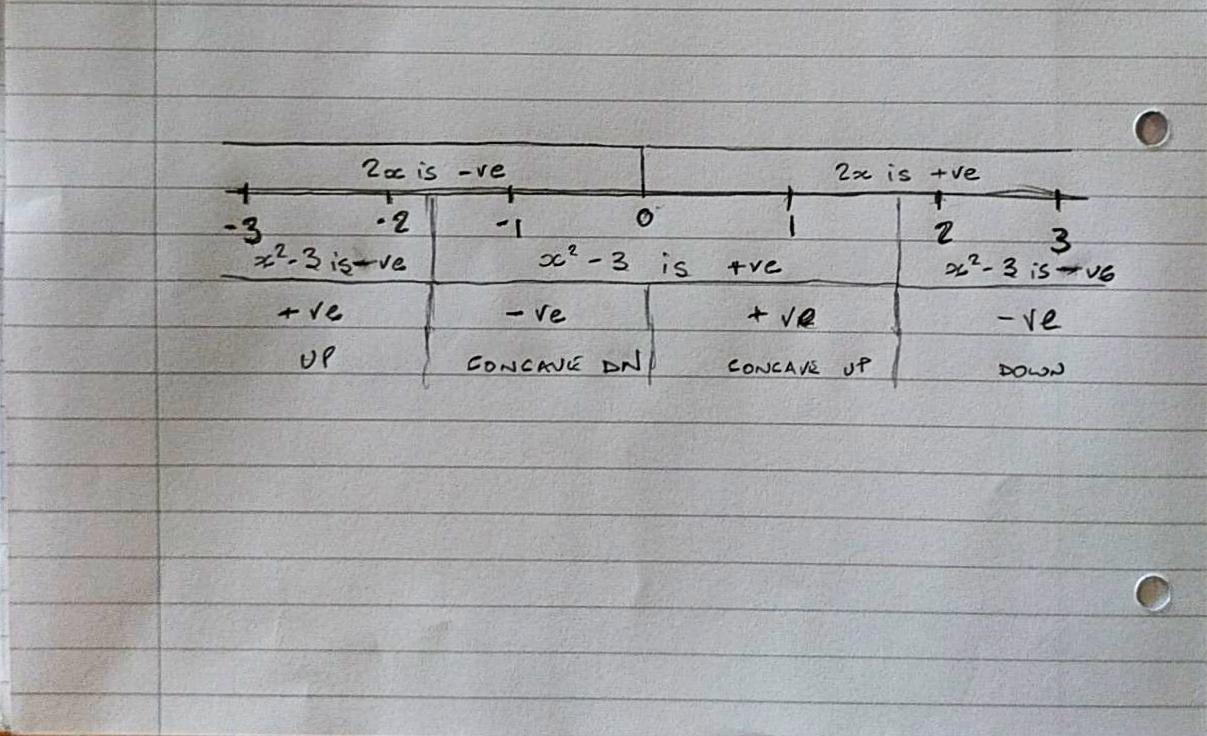 2x is -ve 2x is +ve
-3 -2 -1 0 1 2 3
x²-3 is -ve x²-3 is +ve x²-3 is -ve
+ve -ve +ve -ve
UP CONCAVE DN CONCAVE UP DOWN